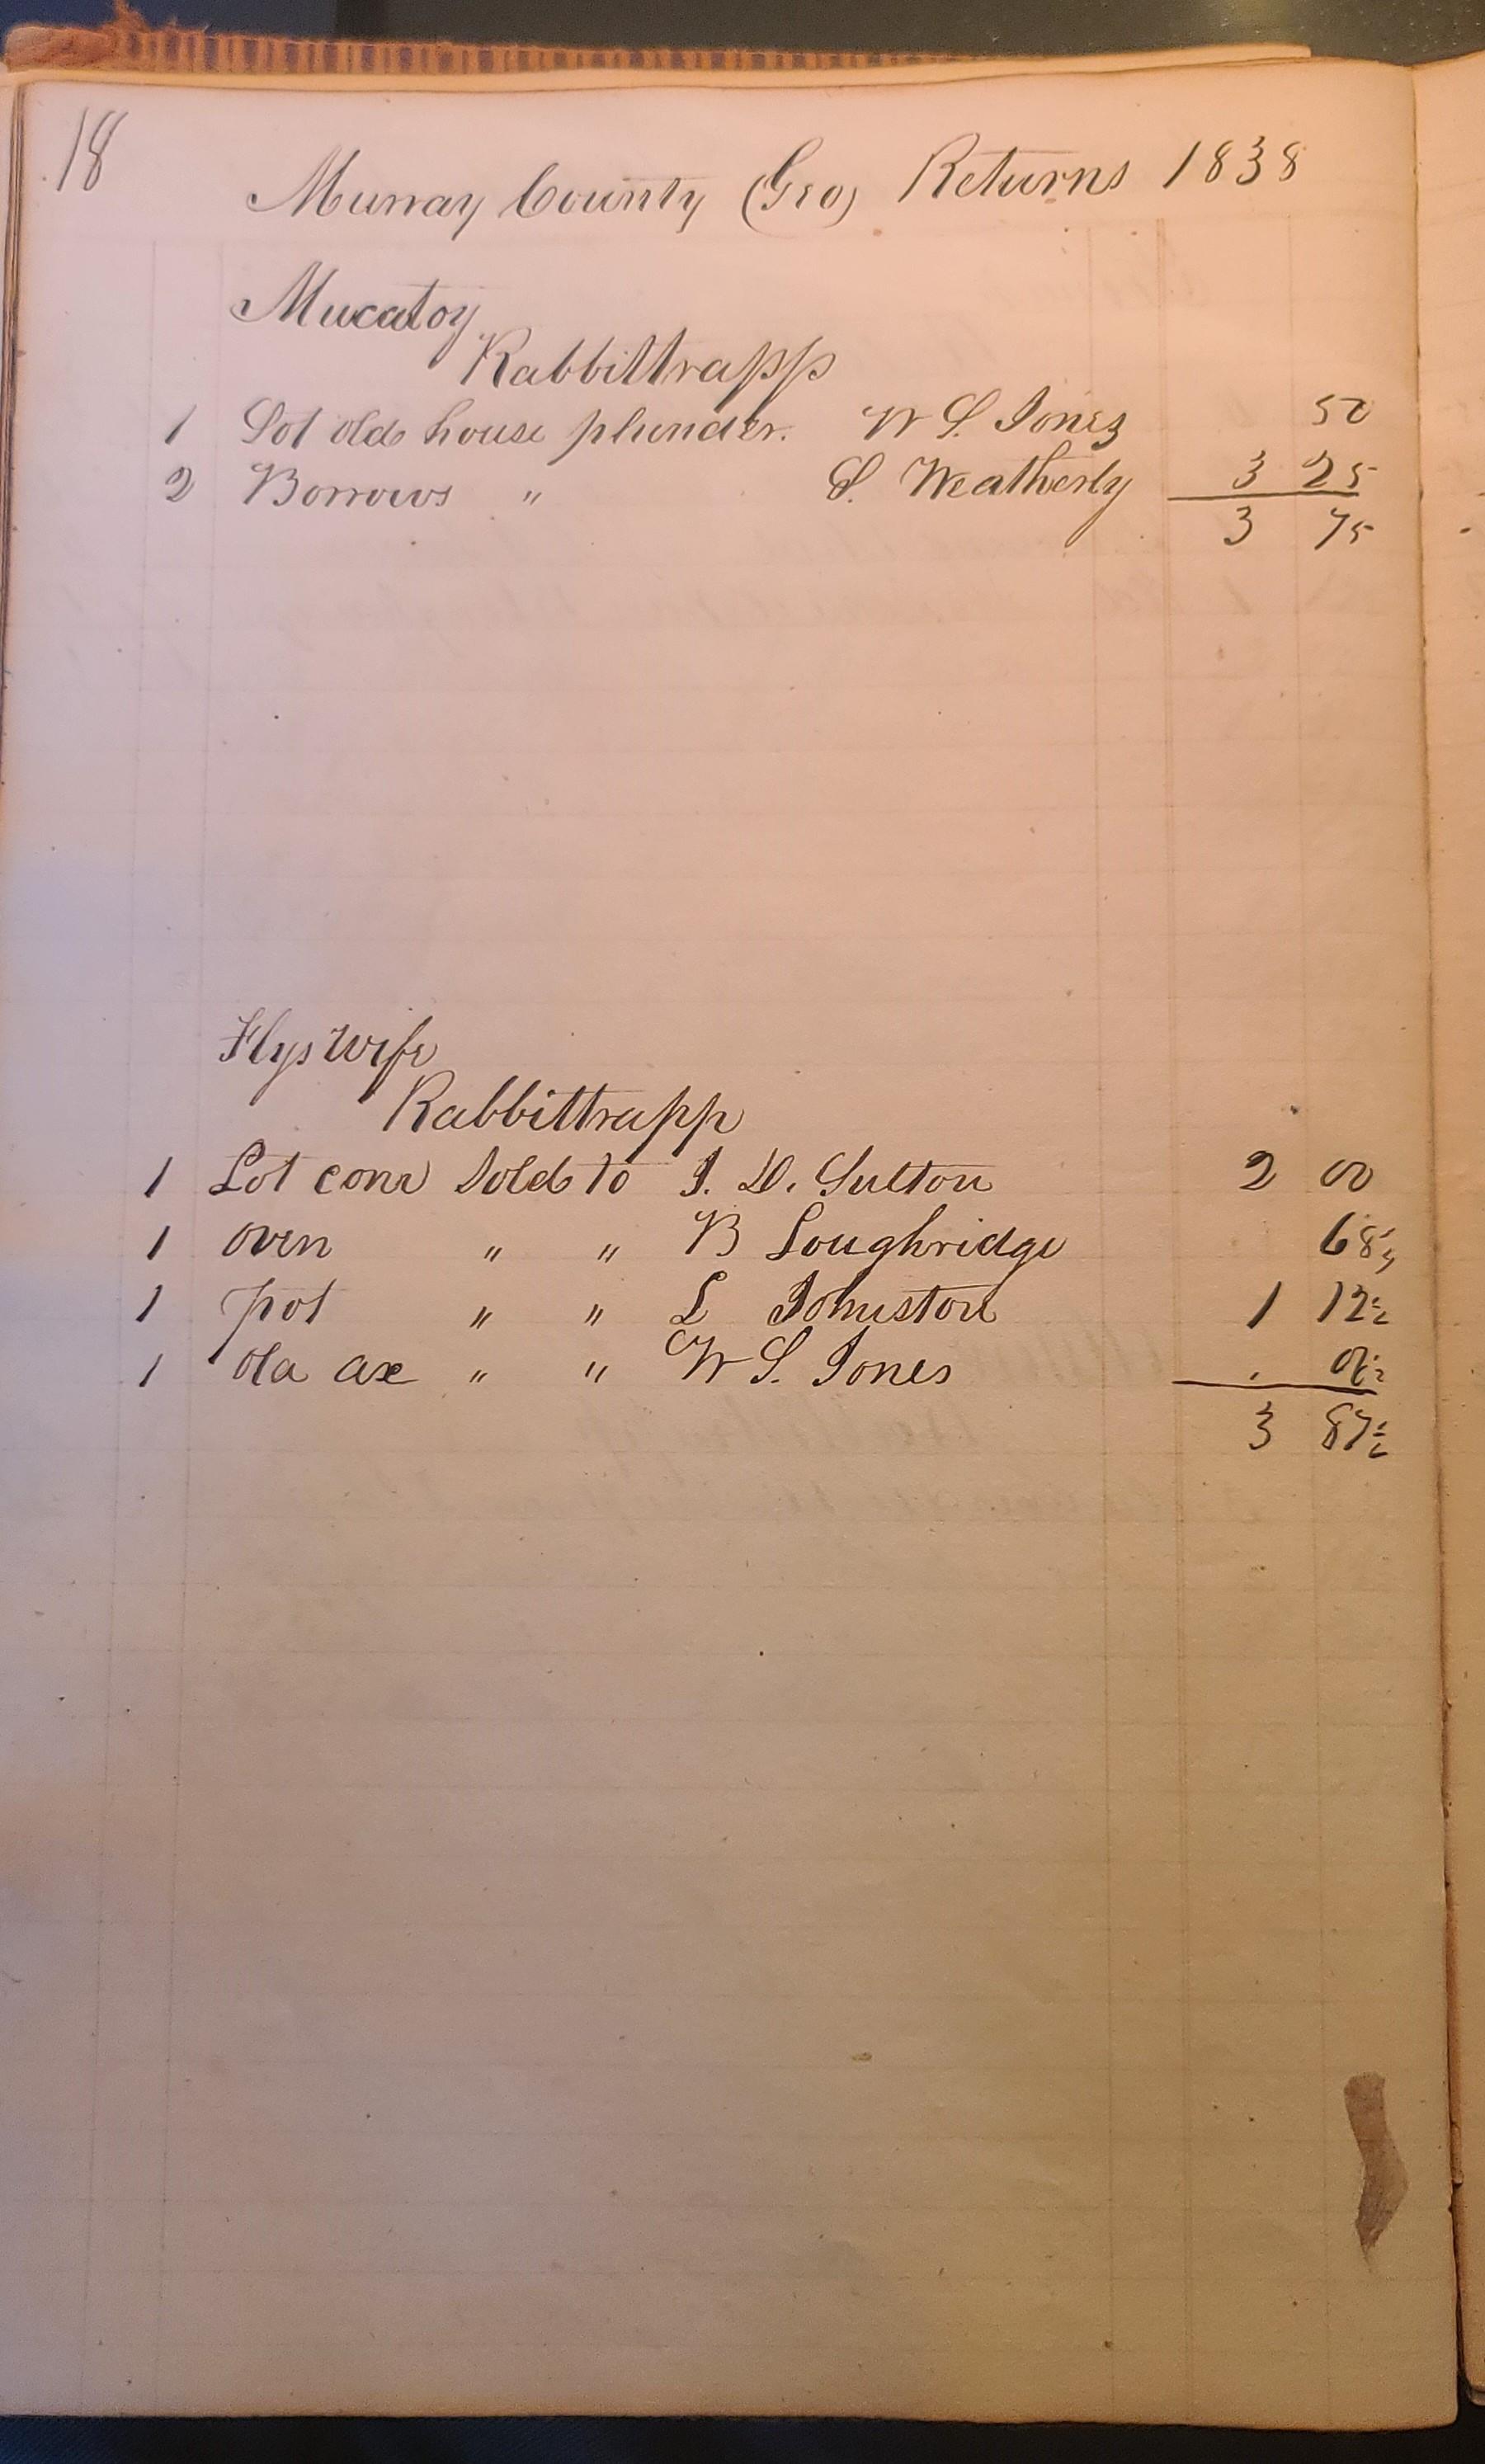 18
Murray County (Geo) Returns 1838
Mucatoy
Rabbittrapp
1 Lot old house plunder. W S. Jones 50
2 Borrows " S. Weatherly 3 25
3 75
Flys Wife
Rabbittrapp
1 Lot corn Sold to J. D. Sutton 2 00
1 oven " " B Loughridge 68
1 pot " " L Johnston 1 12½
1 old axe " " W S. Jones
3 87½